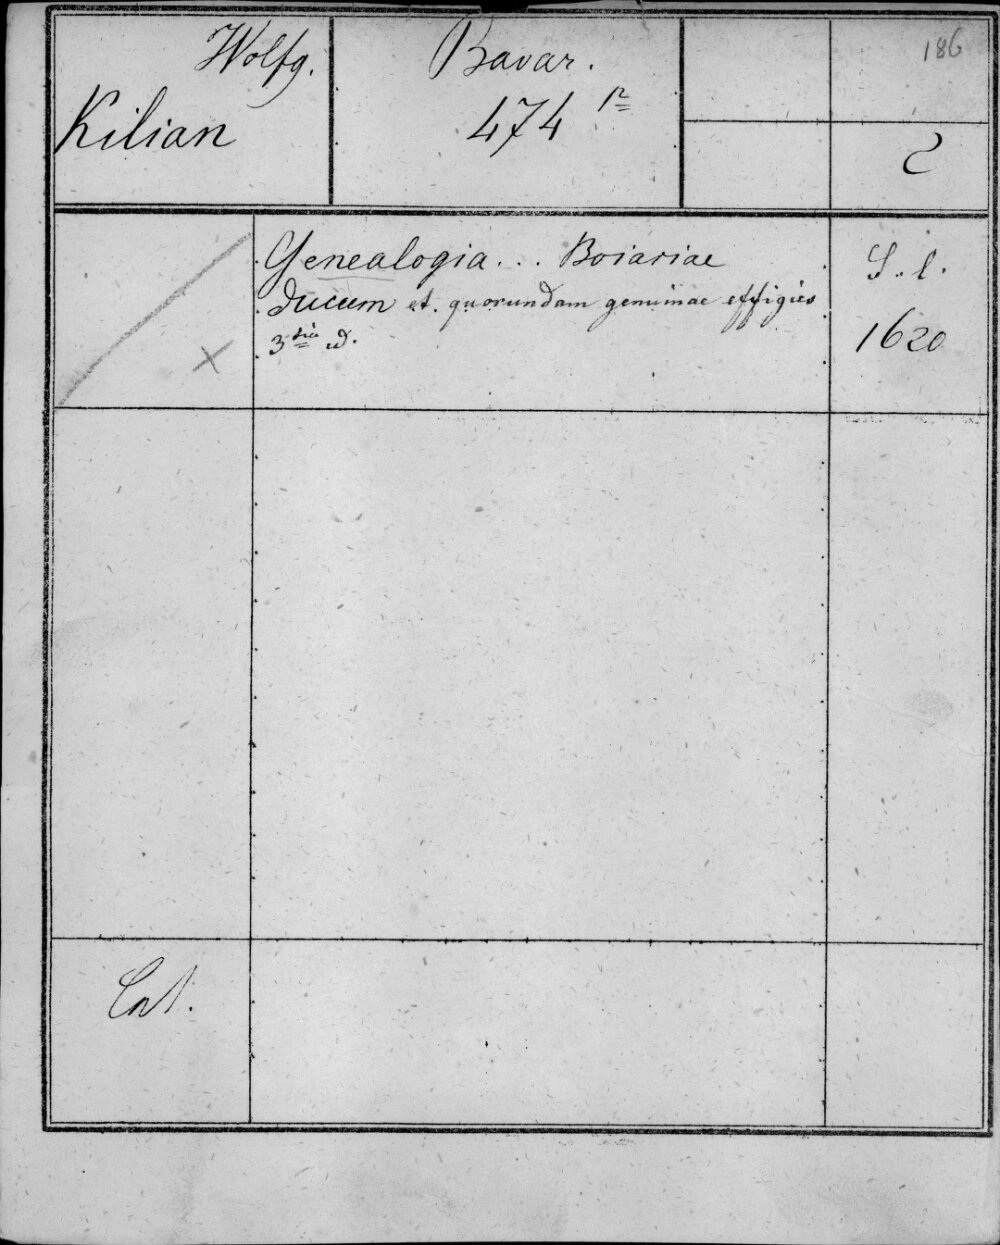 Wolfg.
Kilian
Bavar.
474 12
186
2
Genealogia... Boiariae
ducum et quorundam genuinae effigies
3
S. l.
1620
Cat.